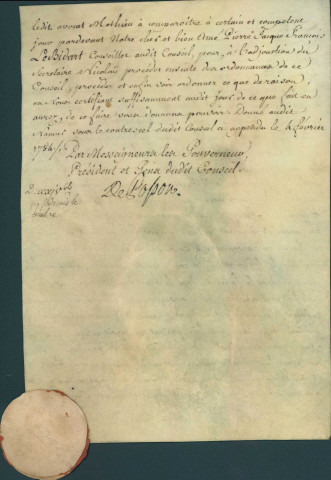 ledit avocat Mathieu à comparoître à certain et competent
jour pardevant Notre cher et bien Amé Pierre Jacque François
Le Bidart Conseiller audit Conseil, pour, à l'adjonction du
Secretaire Nicolaï proceder ensuite des ordonnances de ce
Conseil, proceder et enfin voir ordonner ce que de raison
en Nous certifiant suffisamment audit jour de ce que fait en
aurez, de ce faire vous donnons pouvoir. Donné audit
Namur sous le contreseel dudit Conseil ci appendu le fevrier
1784
Par Messeigneurs les Gouverneur,
Président et Gens dudit Conseil.